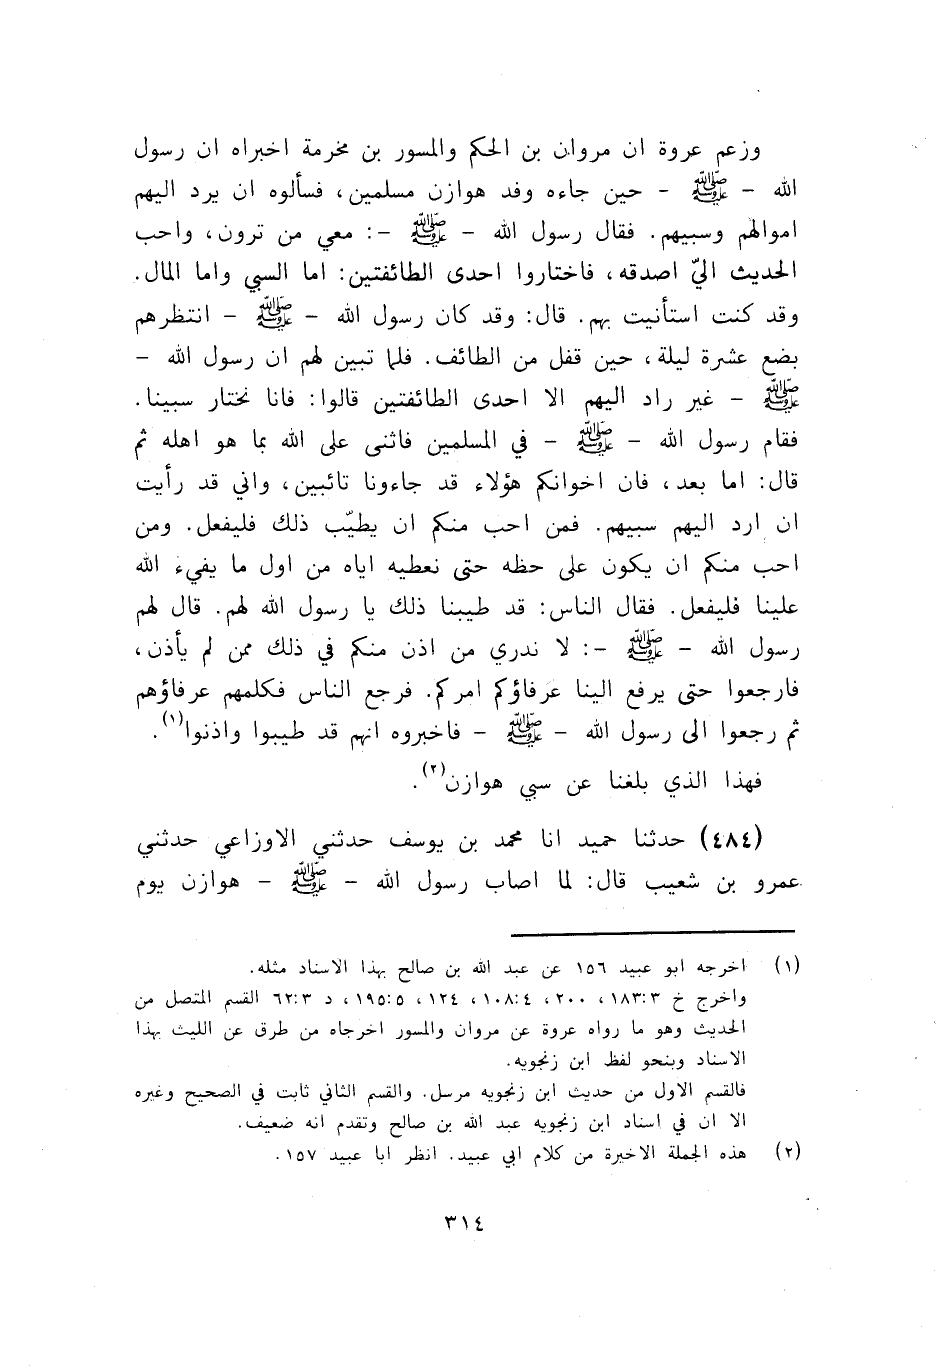 وزعم عروة ان مروان بن الحكم والمسور بن مخرمة اخبراه ان رسول
الله - ﷺ - حين جاءه وفد هوازن مسلمين، فسألوه ان يرد اليهم
اموالهم وسبيهم. فقال رسول الله - ﷺ -: معي من ترون، واحب
الحديث اليّ اصدقه، فاختاروا احدى الطائفتين: اما السبي واما المال.
وقد كنت استأنيت بهم. قال: وقد كان رسول الله - ﷺ - انتظرهم
بضع عشرة ليلة، حين قفل من الطائف. فلما تبين لهم ان رسول الله -
ﷺ - غير راد اليهم الا احدى الطائفتين قالوا: فانا نختار سبينا.
فقام رسول الله - ﷺ - في المسلمين فاثنى على الله بما هو اهله ثم
قال: اما بعد، فان اخوانكم هؤلاء قد جاءونا تائبين، واني قد رأيت
ان ارد اليهم سبيهم. فمن احب منكم ان يطيّب ذلك فليفعل. ومن
احب منكم ان يكون على حظه حتى نعطيه اياه من اول ما يفيء الله
علينا فليفعل. فقال الناس: قد طيبنا ذلك يا رسول الله لهم. قال لهم
رسول الله - ﷺ -: لا ندري من اذن منكم في ذلك ممن لم يأذن،
فارجعوا حتى يرفع الينا عرفاؤكم امركم. فرجع الناس فكلمهم عرفاؤهم
ثم رجعوا الى رسول الله - ﷺ - فاخبروه انهم قد طيبوا واذنوا(١).
فهذا الذي بلغنا عن سبي هوازن(٢).
(٤٨٤) حدثنا حميد انا محمد بن يوسف حدثني الاوزاعي حدثني
عمرو بن شعيب قال: لما اصاب رسول الله - ﷺ - هوازن يوم
(١) اخرجه ابو عبيد ١٥٦ عن عبد الله بن صالح بهذا الاسناد مثله.
واخرج خ ١٨٣:٣، ٢٠٠، ١٠٨:٤، ١٢٤، ١٩٥:٥، د ٦٢:٣ القسم المتصل من
الحديث وهو ما رواه عروة عن مروان والمسور اخرجاه من طرق عن الليث بهذا
الاسناد وبنحو لفظ ابن زنجويه.
فالقسم الاول من حديث ابن زنجويه مرسل. والقسم الثاني ثابت في الصحيح وغيره
الا ان في اسناد ابن زنجويه عبد الله بن صالح وتقدم انه ضعيف.
(٢) هذه الجملة الاخيرة من كلام ابي عبيد. انظر ابا عبيد ١٥٧.
٣١٤